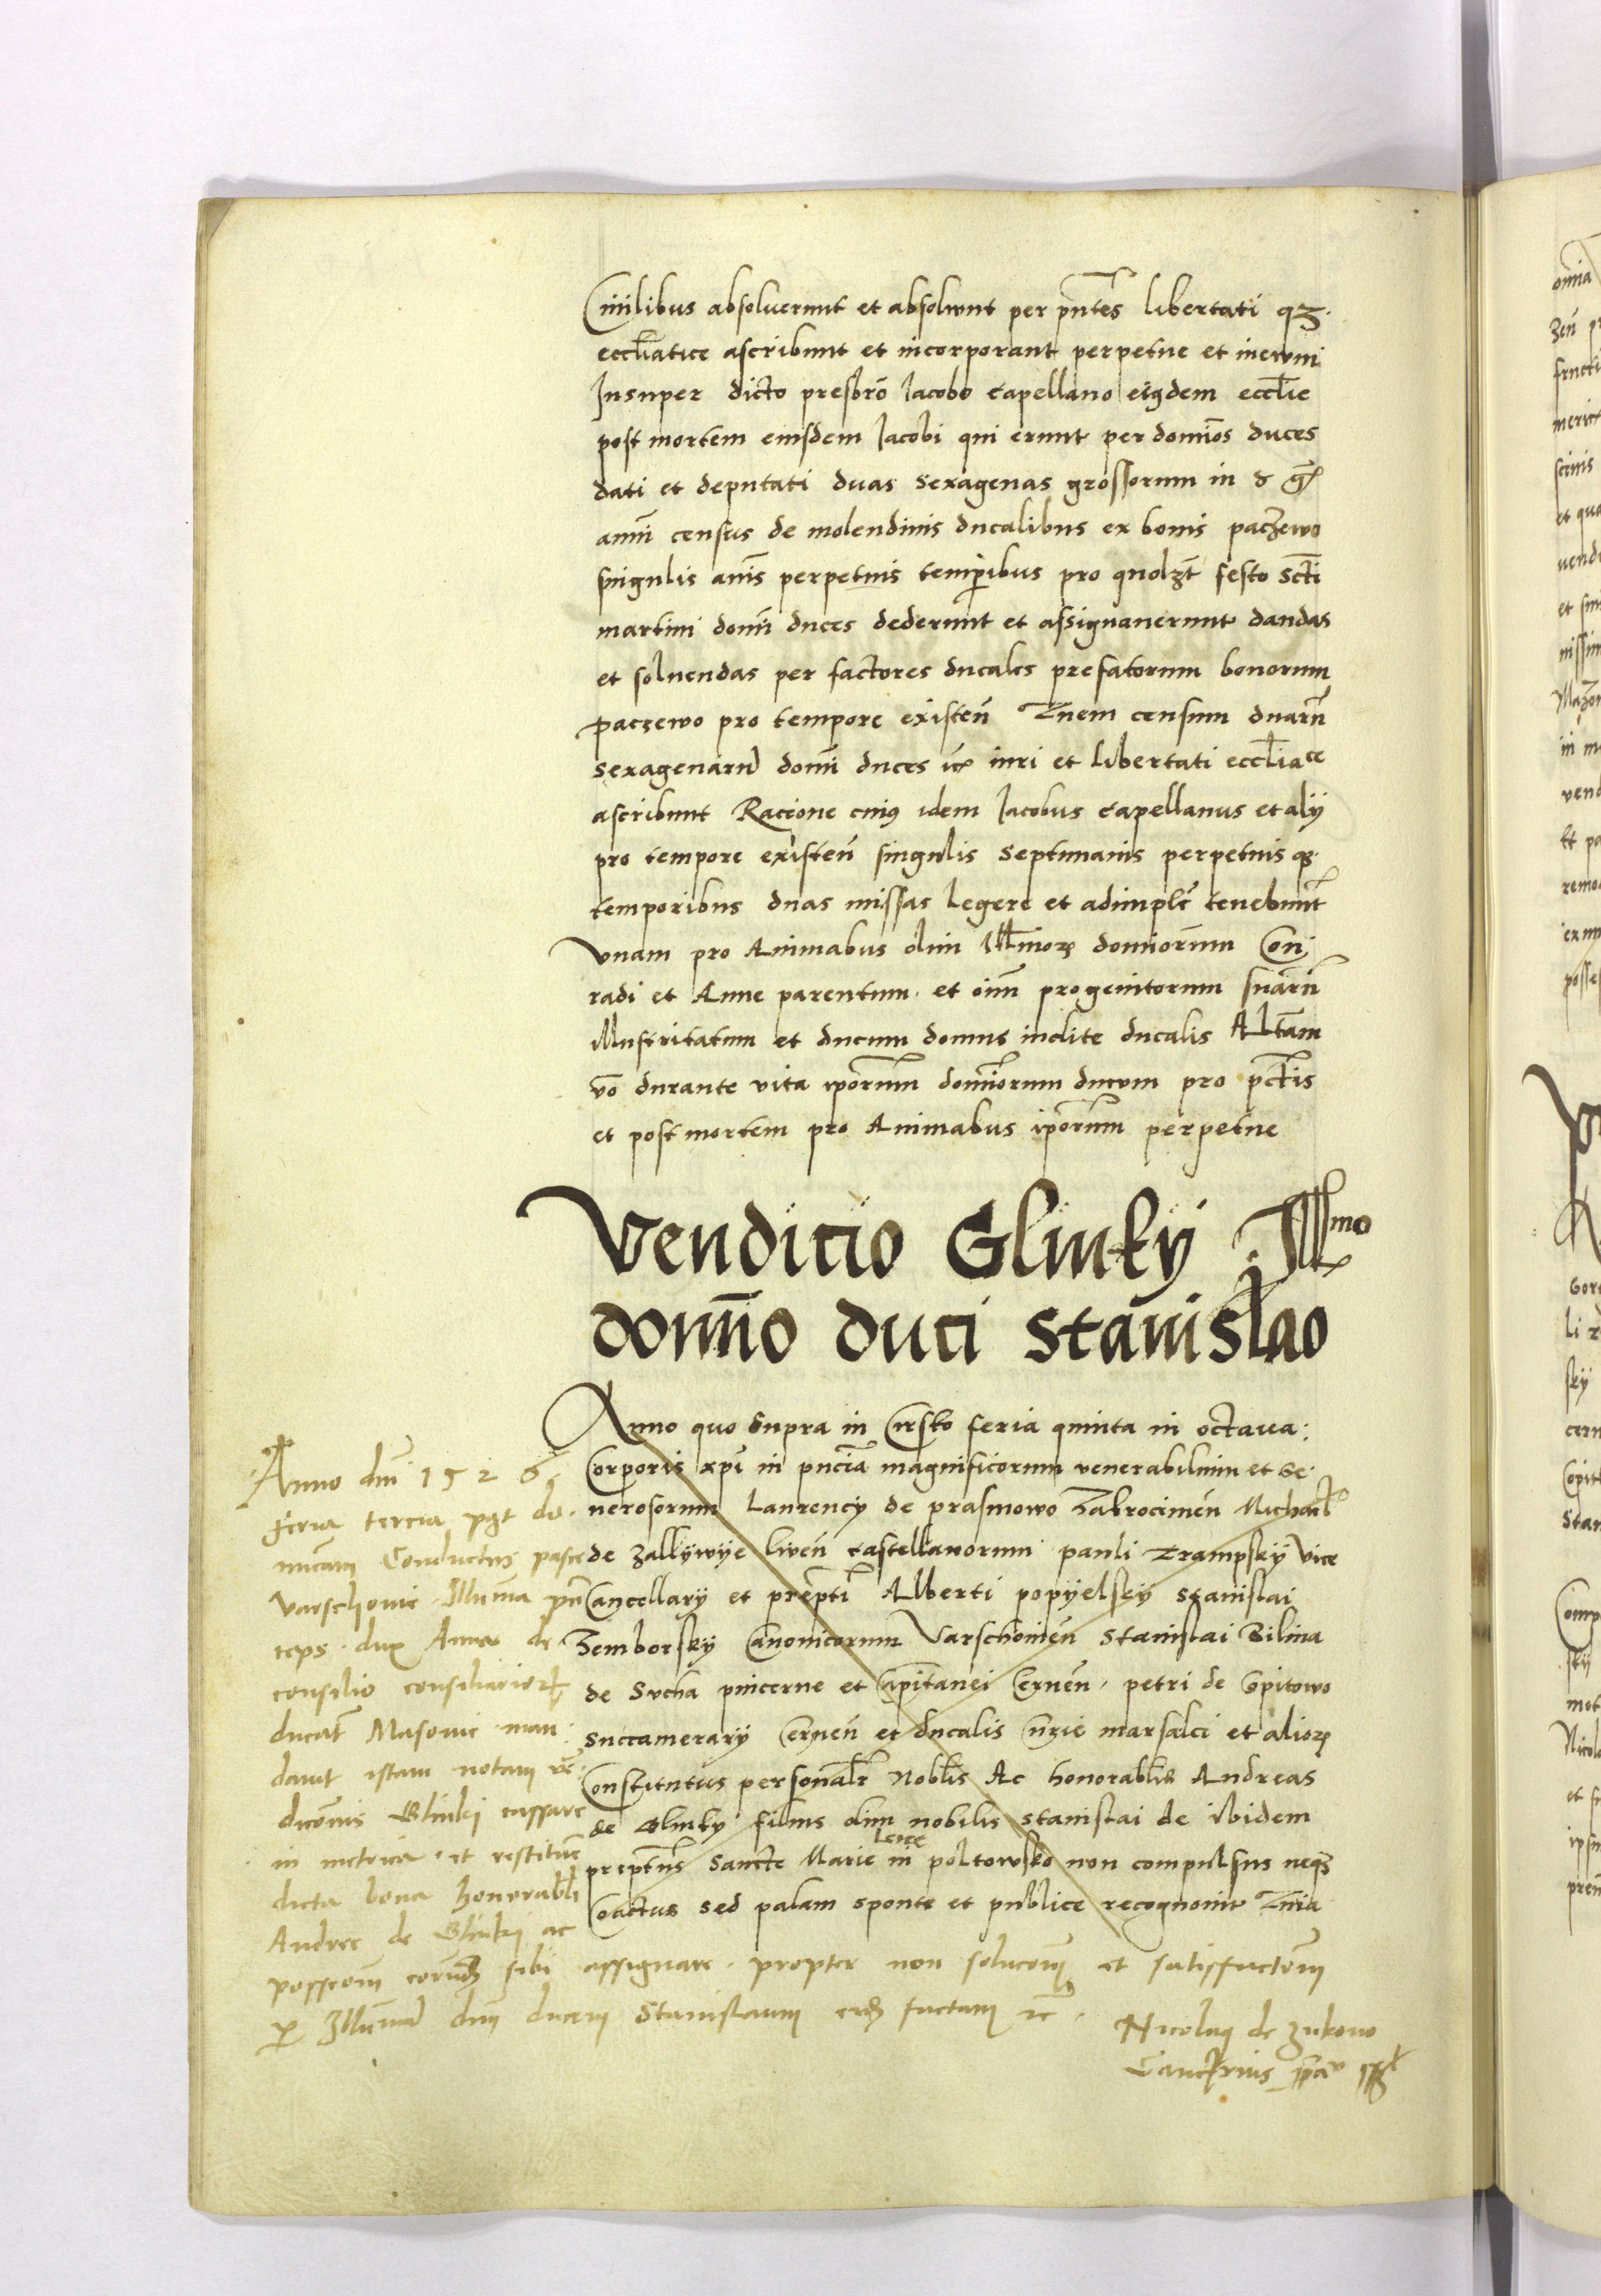 Ciuilibus absoluerunt et absolvunt per pñtes libertati qʒ
eccłiatice ascribunt et incorporant perpetue et in evvni
Insuper dicto presbrõ Jacobo capellano eiꝯdem ecclīe
post mortem eiusdem Jacobi qui erunt per dominos duces
dati et deputati duas sexagenas grossorum in
annui census de molendinis ducalibus ex bonis paczewo
singulis añis perpetuis temp̃ibus pro quolʒt festo Scti
martini domini duces dederunt et assignauerunt dandas
et soluendas per factores ducales prefatorum bonorum
paczewo pro tempore existeñ Quem censum duarũ
sexagenarũ domini duces iuri et libertati eccłiatice
ascribunt Racione cuiꝯ idem Jacobus capellanus et alÿ
pro tempore existeñ singulis septimanis perpetuis qʒ
temporibus duas missas legere et adimplere tenebunt
vnam pro Animabus olim Illmorꝝ dominorum Con
radi et Anne parentum et oim̃ progenitorum suarũ
illustritatum et ducum domus inclite ducalis Altam
vo durante vita ip̃orum dominorum ducum pro pctis
et post mortem pro Animabus ip̃orum perpetue
Venditio Glinky Illmo
domino duci Stanislao
Anno quo supra in crsto feria quinta in octaua
Corporis xpi in pñcia magnificorum venerabilium et Ge
nerosorum Laurencÿ de prasmowo Zakrocimeñ Michael
de zallÿwÿe liveñ castellanorum pauli Trampskÿ vice
Cancellarÿ et prepti Alberti popÿelskÿ Stanislai
Zemborskÿ Canonicorum Varschovieñ Stanislai Bilina
de Sucha pincerne et Capitanei Cerneñ petri de Copitowo
succamerarÿ Cerneñ et ducalis Curie marsalci et aliorꝝ
Constitutus personalr Nobilis Ac honorabilis Andreas
de Glinkÿ filius olim nobilis stanislai de ibidem
preptus Sancte Marie in Lete poltowsko non compulsus neqʒ
Coactus sed palam sponte et publice recognouit Quia
Anno dni 1526
feria tercia post do
nicam Conductus pasce
Varschovie Illma prin
ceps dux Anna de
consilio consiliariorꝝ
ducat Masovie man
davit istam notam ve
dicionis Glinki cassare
in metrica et restituere
dicta bona honorabili
Andree de Glinki ac
possessionem eorundem sibi assignare propter non solucionem et satisfactionem
per Illmum dnm ducem Stanislaum factam etc
Nicolaus de Zukowo
Cancellarius